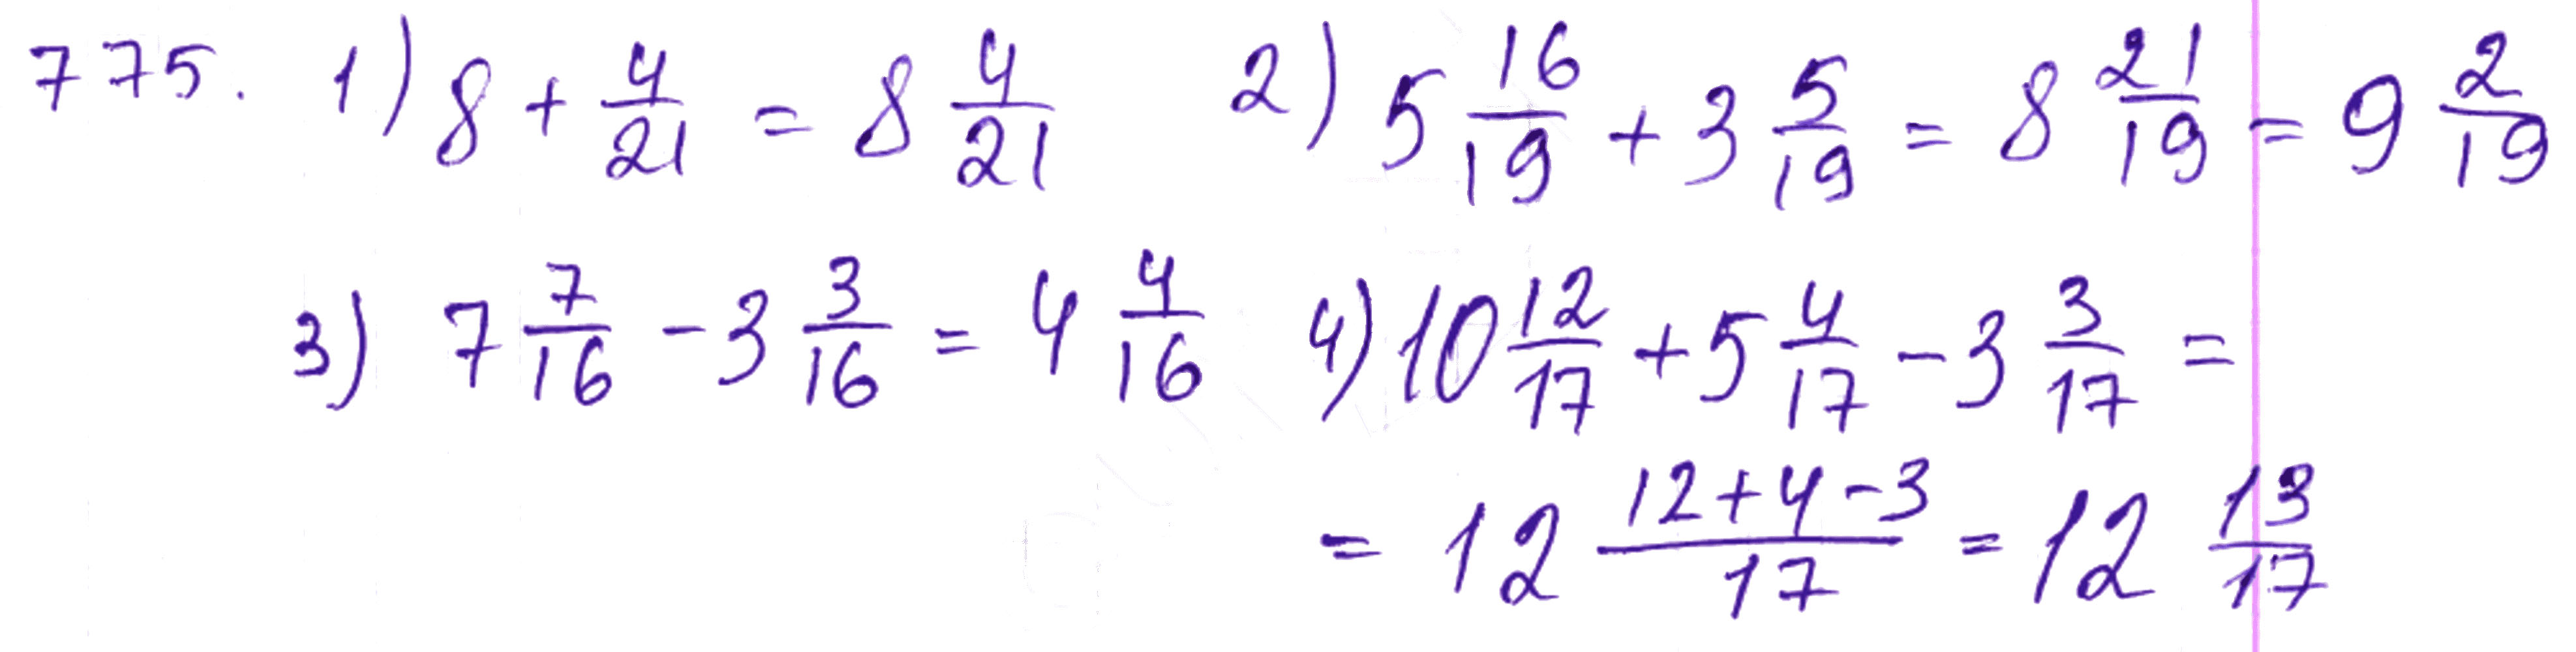 775. 1) 8 + 4/21 = 8 4/21 2) 5 16/19 + 3 5/19 = 8 21/19 = 9 2/19
3) 7 7/16 - 3 3/16 = 4 4/16 4) 10 12/17 + 5 4/17 - 3 3/17 =
= 12 (12+4-3)/17 = 12 13/17